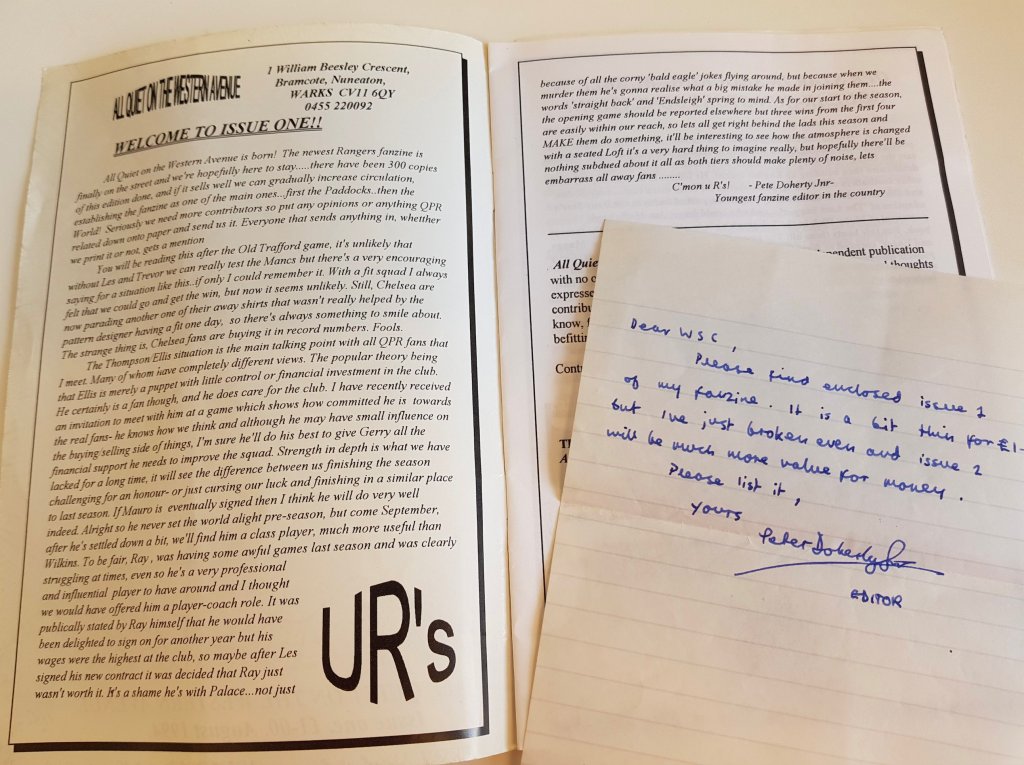 ALL QUIET ON THE WESTERN AVENUE
1 William Beesley Crescent,
Bramcote, Nuneaton,
WARKS CV11 6QY
0455 220092
WELCOME TO ISSUE ONE!!
All Quiet on the Western Avenue is born! The newest Rangers fanzine is
finally on the street and we're hopefully here to stay.....there have been 300 copies
of this edition done, and if it sells well we can gradually increase circulation,
establishing the fanzine as one of the main ones...first the Paddocks..then the
World! Seriously we need more contributors so put any opinions or anything QPR
related down onto paper and send us it. Everyone that sends anything in, whetther
we print it or not, gets a mention
You will be reading this after the Old Trafford game, it's unlikely that
without Les and Trevor we can really test the Mancs but there's a very encouraging
saying for a situation like this..if only I could remember it. With a fit squad I always
felt that we could go and get the win, but now it seems unlikely. Still, Chelsea are
now parading another one of their away shirts that wasn't really helped by the
pattern designer having a fit one day, so there's always something to smile about.
The strange thing is, Chelsea fans are buying it in record numbers. Fools.
The Thompson/Ellis situation is the main talking point with all QPR fans that
I meet. Many of whom have completely different views. The popular theory being
that Ellis is merely a puppet with little control or financial investment in the club.
He certainly is a fan though, and he does care for the club. I have recently received
an invitation to meet with him at a game which shows how committed he is towards
the real fans- he knows how we think and although he may have small influence on
the buying/selling side of things, I'm sure he'll do his best to give Gerry all the
financial support he needs to improve the squad. Strength in depth is what we have
lacked for a long time, it will see the difference between us finishing the season
challenging for an honour- or just cursing our luck and finishing in a similar place
to last season. If Mauro is eventually signed then I think he will do very well
indeed. Alright so he never set the world alight pre-season, but come September,
after he's settled down a bit, we'll find him a class player, much more useful than
Wilkins. To be fair, Ray , was having some awful games last season and was clearly
struggling at times, even so he's a very professional
and influential player to have around and I thought
we would have offered him a player-coach role. It was
publically stated by Ray himself that he would have
been delighted to sign on for another year but his
wages were the highest at the club, so maybe after Les
signed his new contract it was decided that Ray just
wasn't worth it. It's a shame he's with Palace...not just
UR's
because of all the corny 'bald eagle' jokes flying around, but because when we
murder them he's gonna realise what a big mistake he made in joining them....the
words 'straight back' and 'Endsleigh' spring to mind. As for our start to the season,
the opening game should be reported elsewhere but three wins from the first four
are easily within our reach, so lets all get right behind the lads this season and
MAKE them do something, it'll be interesting to see how the atmosphere is changed
with a seated Loft it's a very hard thing to imagine really, but hopefully there'll be
nothing subdued about it all as both tiers should make plenty of noise, lets
embarrass all away fans ........
C'mon u R's! - Pete Doherty Jnr-
Youngest fanzine editor in the country
All Quie
pendent publication
with no o
thoughts
expresse
contribu
know,
befittin
Cont
Th
A
Dear WSC,
Please find enclosed issue 1
of my fanzine. It is a bit thin for £1-
but I've just broken even and issue 2
will be much more value for money.
Please list it,
Yours
Peter Doherty Jnr
EDITOR